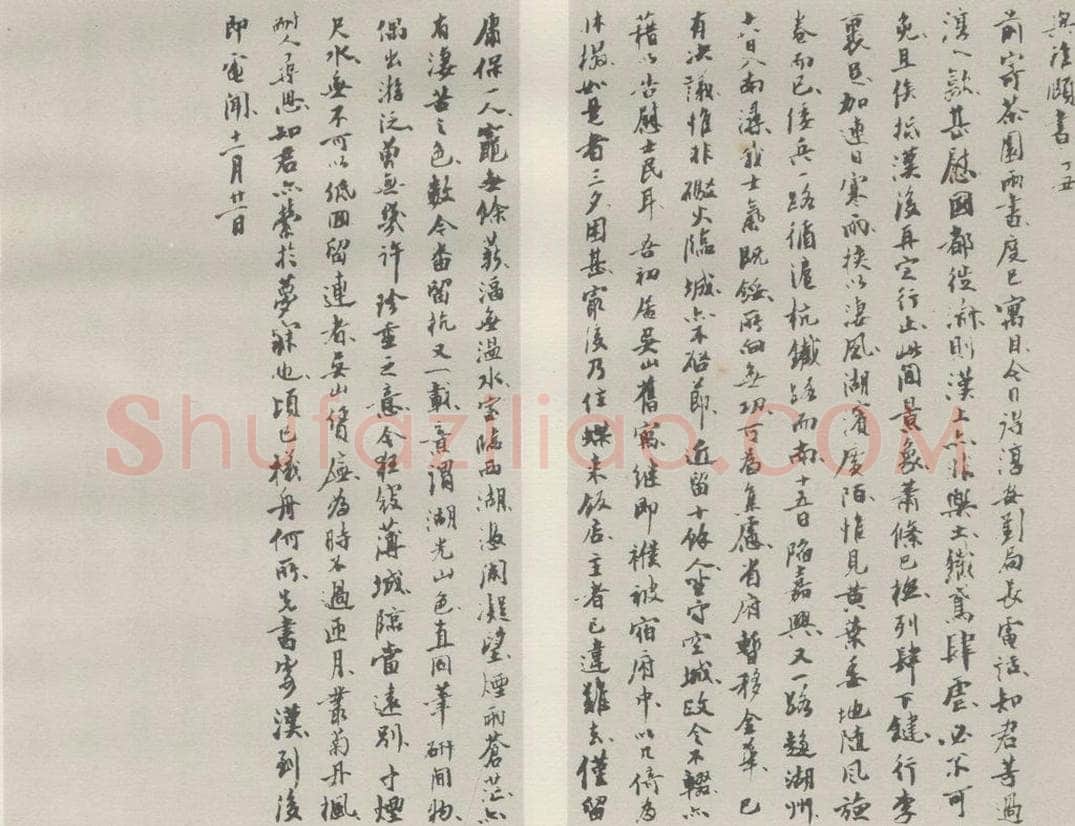 與ліжение書 丁丑
前寄茶園兩書度已寓目今日得淳安劉局長電話知君等過
淳入歙甚慰國都徙渝則漢上亦非樂土鐵鳶肆虐必不可
免且俟抵漢後再定行止此間景象蕭條已極列肆下鍵行李
裹足加連日寒雨挾以淒風湖濱廣陌惟見黃葉委地隨風旋
卷而已倭兵一路循滬杭鐵路而南十五日陷嘉興又一路趨湖州
十六日入南潯我士氣既餒所向無功可為焦慮省府暫移金華已
有決議惟非礮火臨城亦不啓節近留十餘人堅守空城政令不輟亦
藉以告慰士民耳吾初居吳山舊寓繼即襆被宿府中以几倚為
休攝如是者三夕困甚最後乃住蝶來飯店主者已違難去僅留
庸保一人竈無餘薪湢無溫水室臨西湖憑闌凝望煙雨蒼茫亦
有淒苦之色數令畬留杭又一載竟謂湖光山色直同筆研間物
偶出游泛曾無幾許珍重之意今狂鋒薄城際當遠別寸煙
尺水無不可以低回留連者吳山賃廡為時不過匝月叢菊丹楓
耐人尋思知君亦縈於夢寐也頃已檥舟何所先書寄漢到後
即電聞十一月廿一日
Shufaziliao.COM